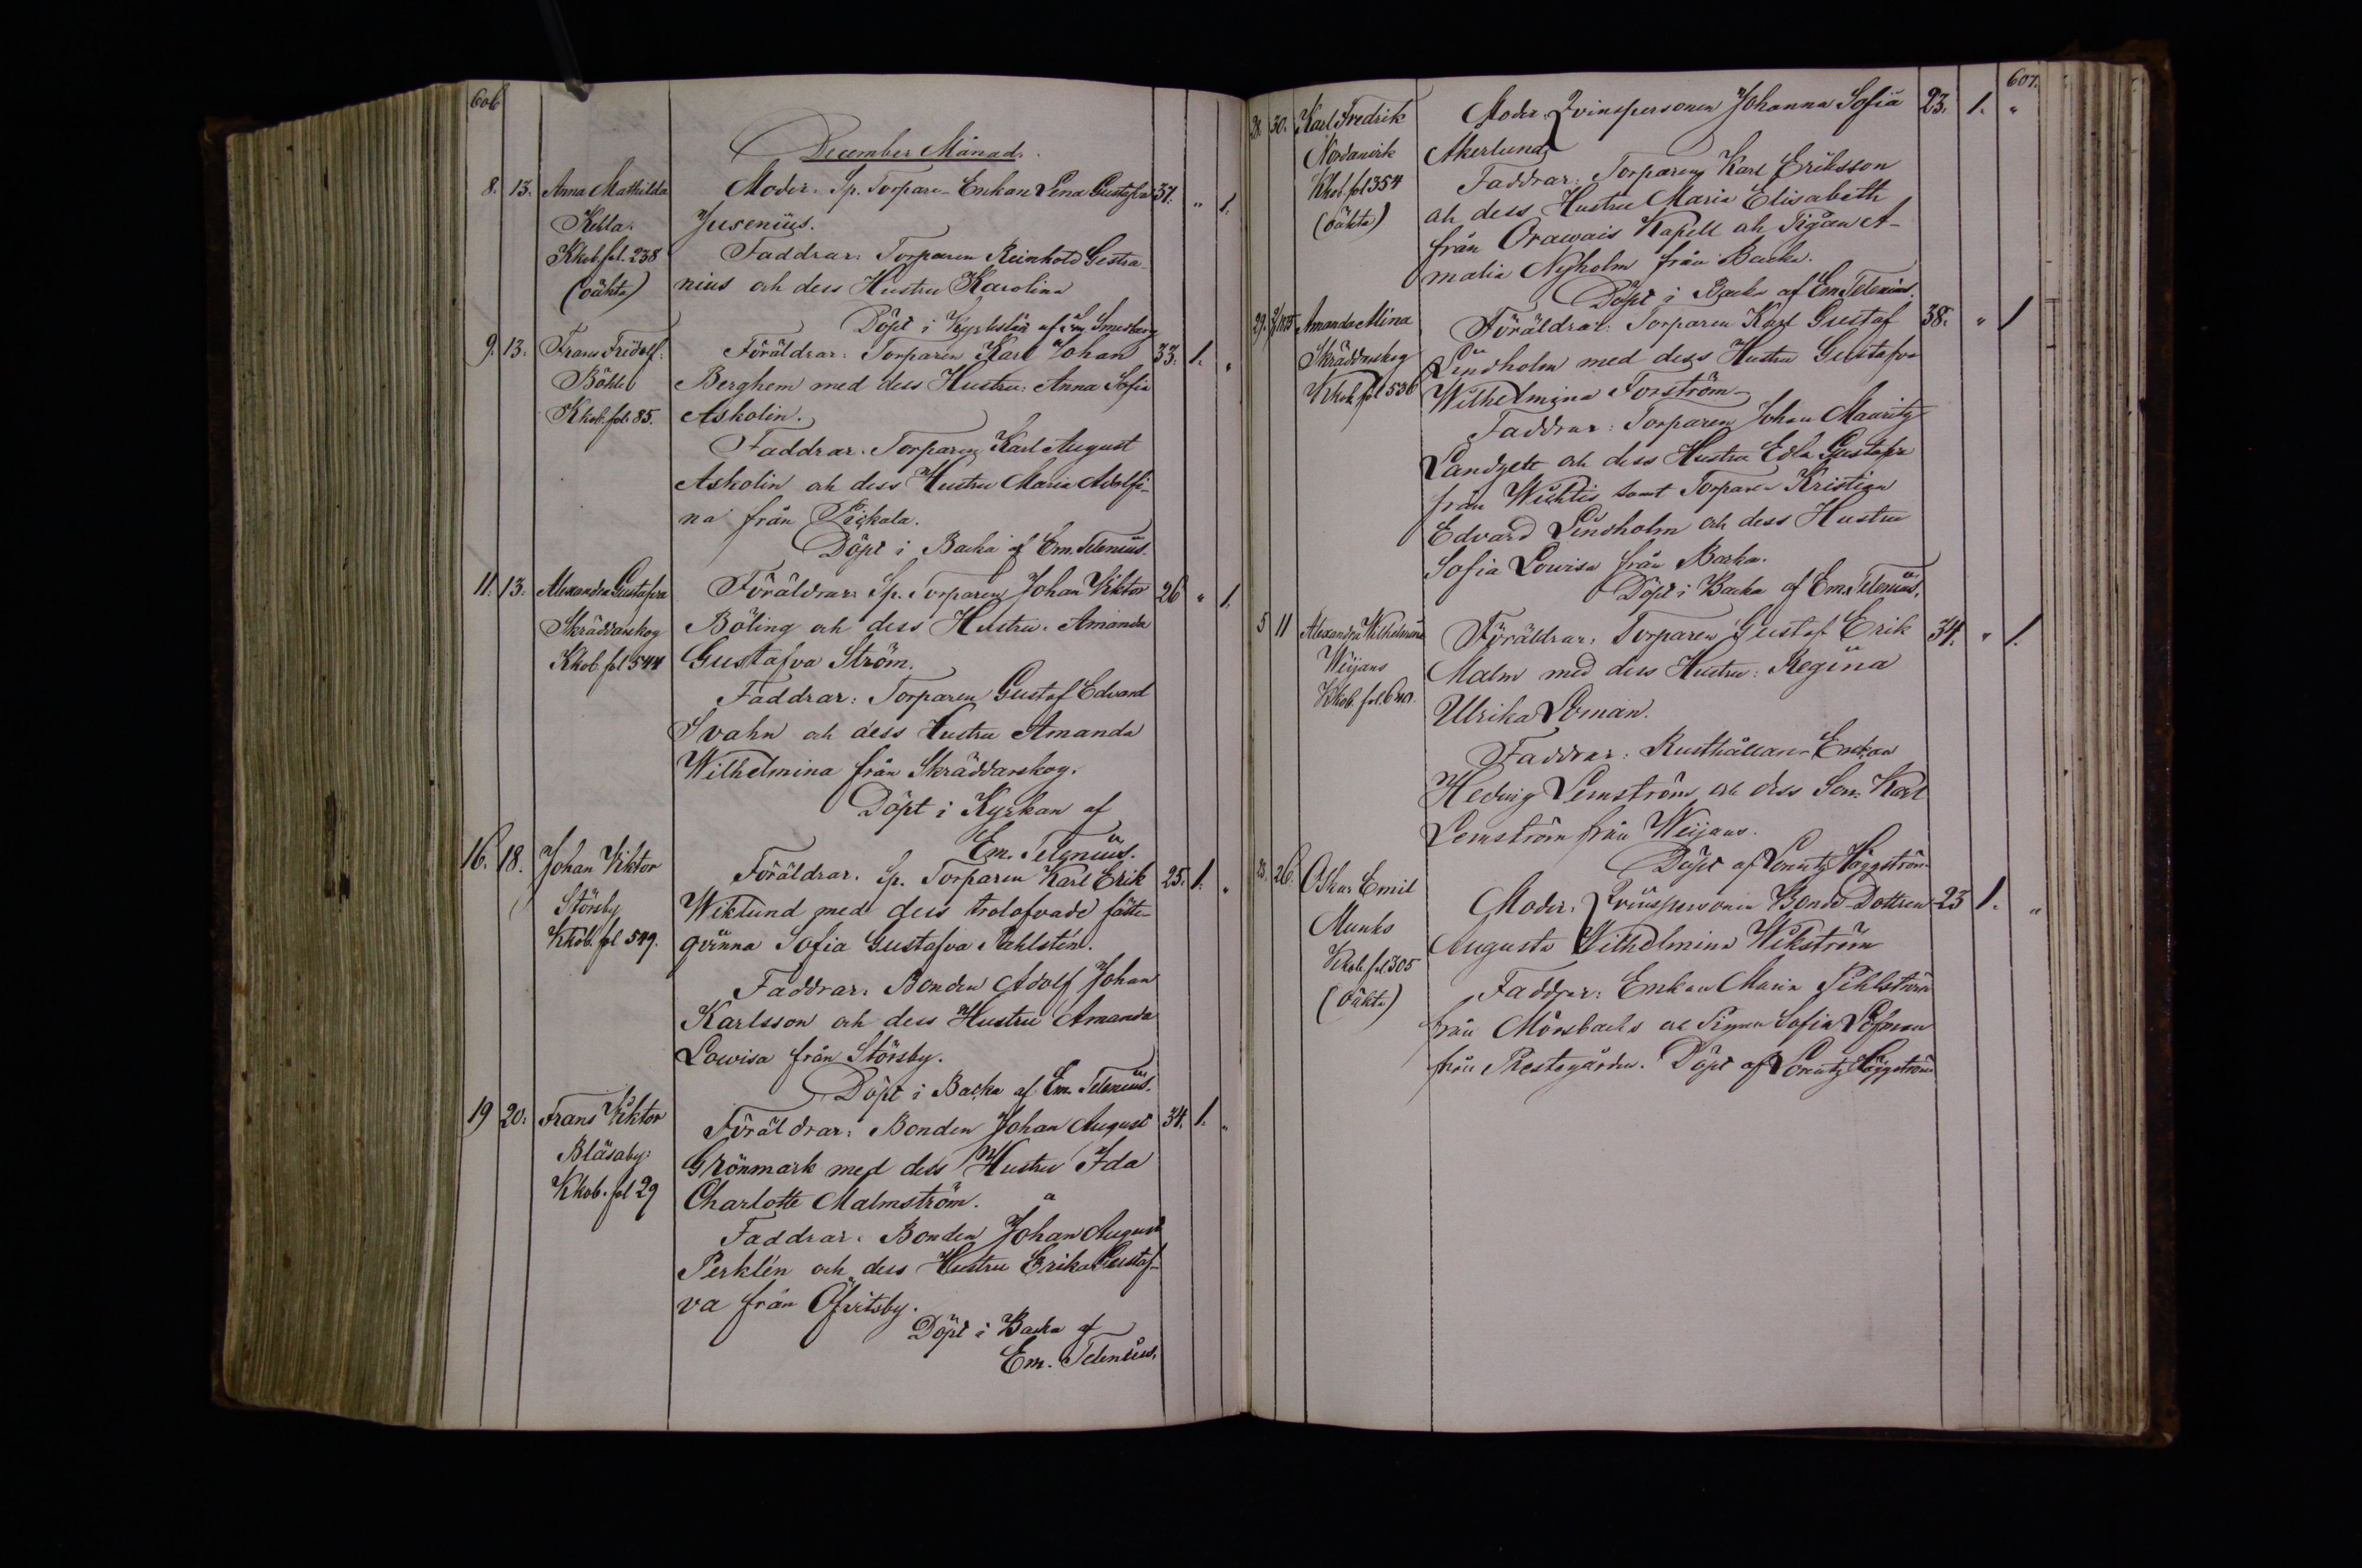 606
December Månad.
8. 13. Anna Mathilda Moder: Sp. Torpare-Enkan Lena Gustafva 37. " 1.
Kehla. Jusenius.
Kkob. fol. 238 Faddrar: Torparen Reinhold Gestra-
(oäkta) nius och dess Hustru Karolina
Döpt i af Smedberg
9. 13. Frans Fridolf: Föräldrar: Torparen Karl Johan 33. 1. "
Böhle Berghem med dess Hustru: Anna Sofia
Kkob. fol. 85. Askolin.
Faddrar: Torparen Karl August
Askolin och dess Hustru Maria Adolfi-
na från Pickala.
Döpt i Backa af Em. Telenius.
11. 13. Alexandra Gustafva Föräldrar: Sp. Torparen Johan Viktor 26 " 1.
Skräddarskog Böling och dess Hustru: Amanda
Kkob. fol 544 Gustafva Ström.
Faddrar: Torparen Gustaf Edvard
Svahn och dess Hustru Amanda
Wilhelmina från Skräddarskog.
Döpt i Kyrkan af
Em. Telenius.
16. 18. Johan Viktor Föräldrar. Sp. Torparen Karl Erik 25. 1. "
Störsby Wiklund med dess trolofvade fäste-
Kkob. fol 549. qvinna Sofia Gustafva Dahlstén.
Faddrar: Bonden Adolf Johan
Karlsson och dess Hustru Amanda
Lowisa från Störsby.
Döpt i Backa af Em. Telenius.
19 20. Frans Viktor Föräldrar: Bonden Johan August 34. 1. "
Bläsaby: Grönmark med dess Hustru Ida
Kkob. fol 29 Charlotte Malmström.
Faddrar: Bonden Johan August
Perklén och dess Hustru Erika Gustaf-
va från Öfvitsby.
Döpt i Backa af
Em. Telenius.
607.
28. 30. Karl Fredrik Moder: Qvinspersonen Johanna Sofia 23. 1. "
Nordanvik Åkerlund
Kkob. fol 354 Faddrar: Torparen Karl Eriksson
(oäkta) och dess Hustru Maria Elisabeth
från Orawais Kapell och Pigan A-
malia Nyholm från Backa.
Döpt i Backa af Em. Telenius.
29. 1875 Amanda Mina Föräldrar: Torparen Karl Gustaf 38. " 1
Skräddarskog Lindholm med dess Hustru Gustafva
Kkob. fol 536 Wilhelmina Forström
Faddrar: Torparen Johan Mauritz
Landgett och dess Hustru Edla Gustafva
från Wichtis samt Torparen Kristian
Edvard Lindholm och dess Hustru
Sofia Lowisa från Backa.
Döpt i Backa af Em. Telenius.
5 11 Alexandra Wilhelmina Föräldrar: Torparen Gustaf Erik 34. " 1.
Weijans Malm med dess Hustru: Regina
Kkob. fol. Ulrika Loman.
Faddrar: Rusthållare-Enkan
Hedvig Lemström och dess Son: Karl
Lemström från Weijans.
Döpt af Lorentz Häggström
23. 26. Oskar Emil Moder: Qvinspersonen Bonde-Dottren 23 1. "
Munks Augusta Wilhelmina Wikström
Kkob. fol 305 Faddrar: Enkan Maria Pihlström
(Oäkta) från Mörsbacks och Pigan Sofia Löfman
från Prestegården. Döpt af Lorentz Häggström